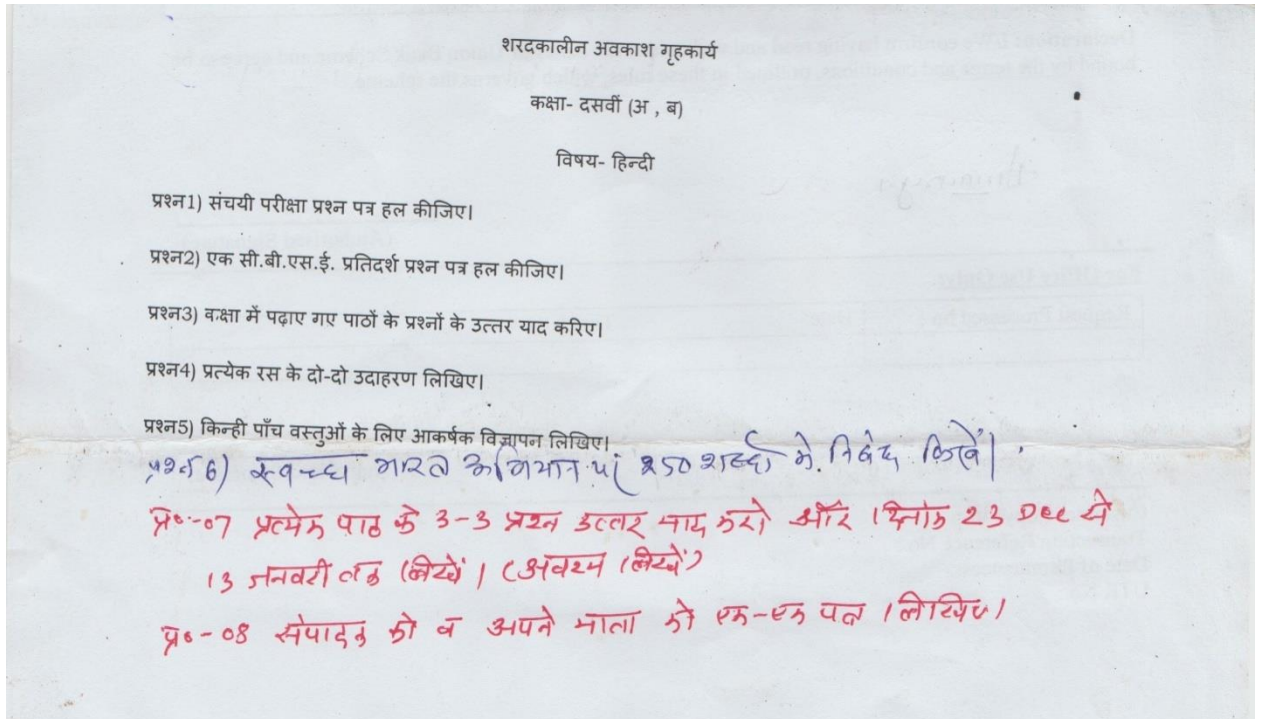 शरदकालीन अवकाश गृहकार्य
कक्षा- दसवीं (अ , ब)
विषय- हिन्दी
प्रश्न1) संचयी परीक्षा प्रश्न पत्र हल कीजिए।
प्रश्न2) एक सी.बी.एस.ई. प्रतिदर्श प्रश्न पत्र हल कीजिए।
प्रश्न3) कक्षा में पढ़ाए गए पाठों के प्रश्नों के उत्तर याद करिए।
प्रश्न4) प्रत्येक रस के दो-दो उदाहरण लिखिए।
प्रश्न5) किन्ही पाँच वस्तुओं के लिए आकर्षक विज्ञापन लिखिए।
प्रश्न 6) स्वच्छ भारत अभियान पर 250 शब्दों में निबंध लिखें।
प्र०-07 प्रत्येक पाठ के 3-3 प्रश्न उत्तर याद करो और दिनांक 23 Dec से
13 जनवरी तक लिखें। (अवश्य लिखें)
प्र०-08 संपादक को व अपने माता को एक-एक पत्र लिखिए।